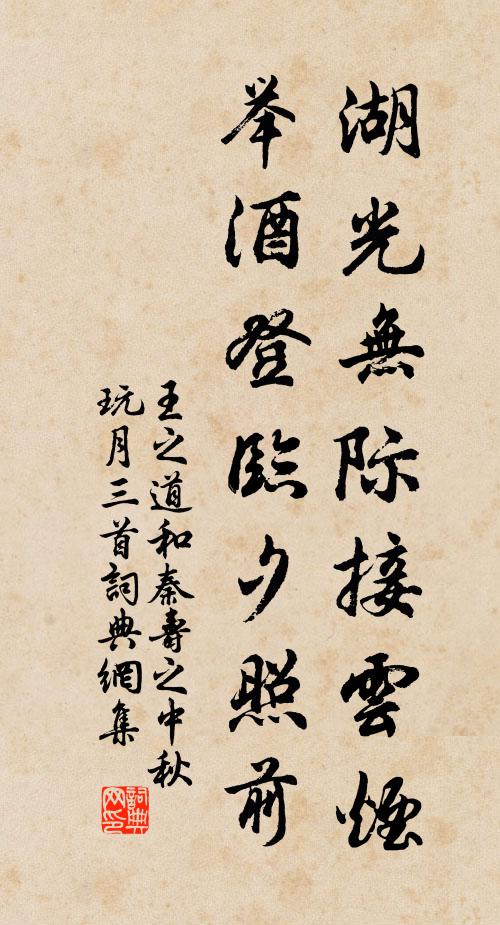 湖光無际接雲煙
举酒登臨夕照前
王之道和秦壽之中秋
玩月三首詞典網集
詞典
网印